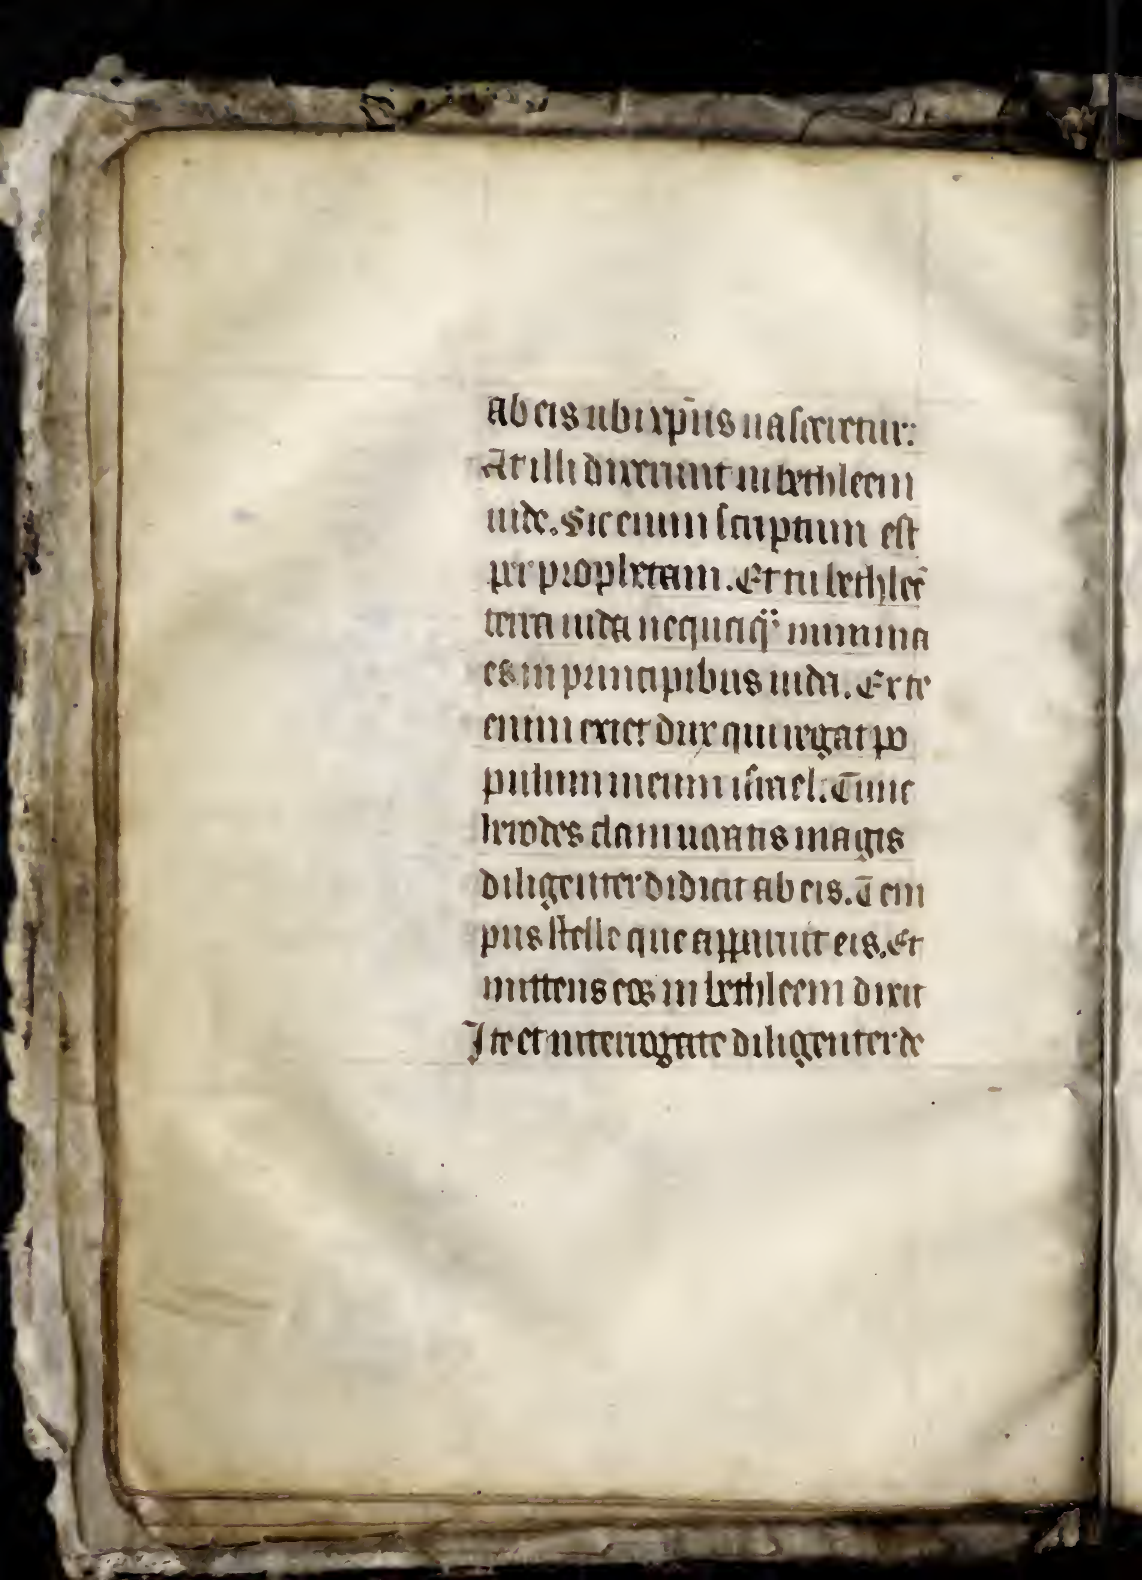 ab eis ubi xp̄us nasceretur:
At illi dixerunt in bethleem
iude. Sic enim scriptum est
per prophetam. Et tu bethleē
terra iuda nequaq̈ minima
es in principibus iuda. Ex te
enim exiet dux qui regat po
pulum meum isr̄ael. Tunc
herodes clam uocatis magis
diligenter didicit ab eis. Tem
pus stelle que apparuit eis. Et
mittens eos in bethleem dixit
Ite et interrogate diligenter de